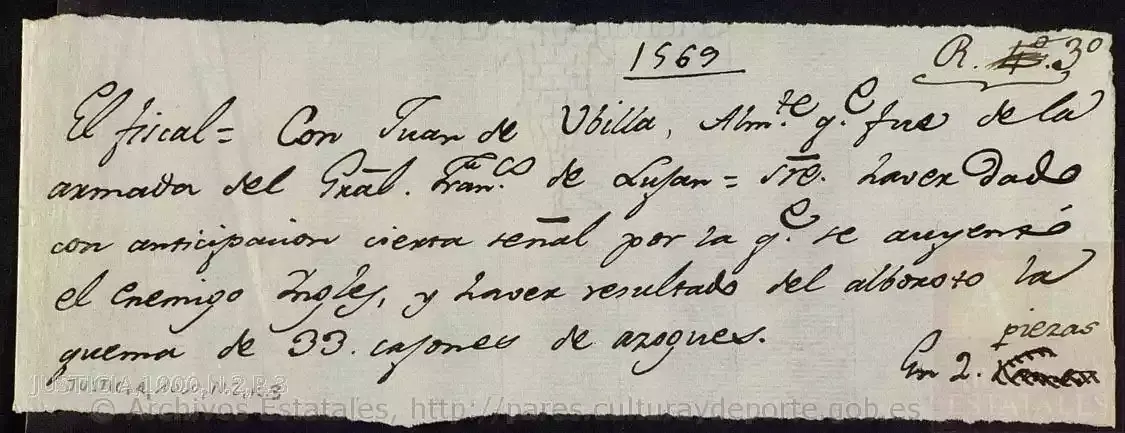 1569
R. 1º. 3º
El fiscal = Con Juan de Ubilla, Almte. qe. fue de la
armada del Gral. Franco. de Lujan = sre. haver dado
con anticipacion cierta señal por la qe. se auyentó
el enemigo Ingles, y haver resultado del alboroto la
quema de 33. cajones de azogues.
En 2. piezas
JUSTICIA,1000,N.2,R.3
© Archivos Estatales, http://pares.culturaydeporte.gob.es